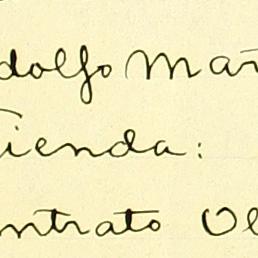 dolfo Mar
Tienda:
ntrato Ol